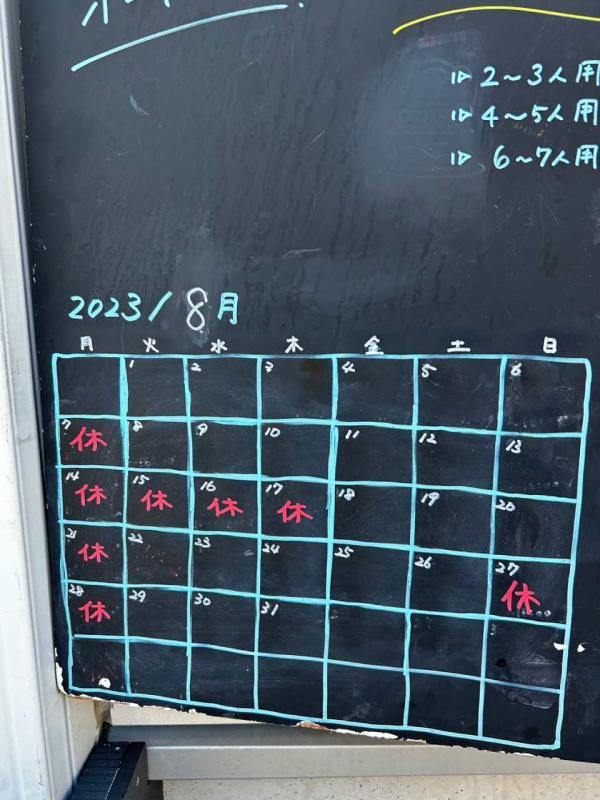 2~3人用
4~5人用
6~7人用
2023/8月
月 火 水 木 金 土 日
1 2 3 4 5 6
7 8 9 10 11 12 13
休
14 15 16 17 18 19 20
休 休 休 休
21 22 23 24 25 26 27
休 休
28 29 30 31
休